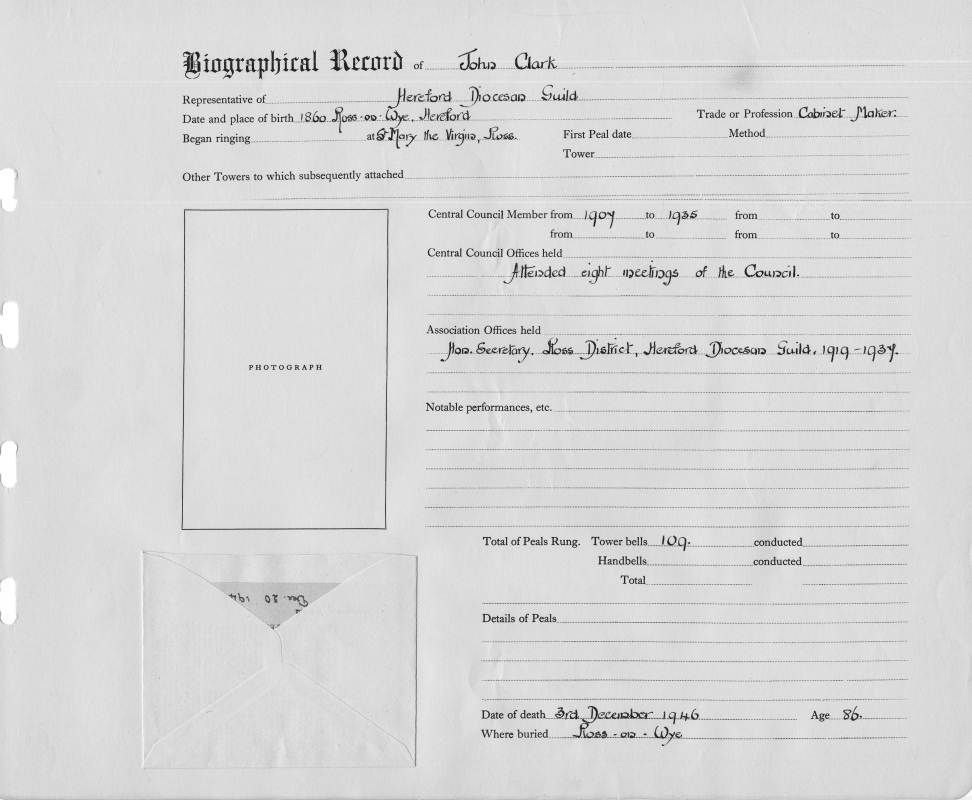 Biographical Record of John Clark
Representative of Hereford Diocesan Guild
Date and place of birth 1860 Ross-on-Wye, Hereford Trade or Profession Cabinet Maker.
Began ringing at St Mary the Virgin, Ross. First Peal date Method
Tower
Other Towers to which subsequently attached
Central Council Member from 1907 to 1935 from to
from to from to
Central Council Offices held
Attended eight meetings of the Council.
Association Offices held
Hon. Secretary, Ross District, Hereford Diocesan Guild. 1919-1937.
PHOTOGRAPH
Notable performances, etc.
Total of Peals Rung. Tower bells 109. conducted
Handbells conducted
Total
Dec. 20 194
Details of Peals
Date of death 3rd December 1946 Age 86.
Where buried Ross-on-Wye